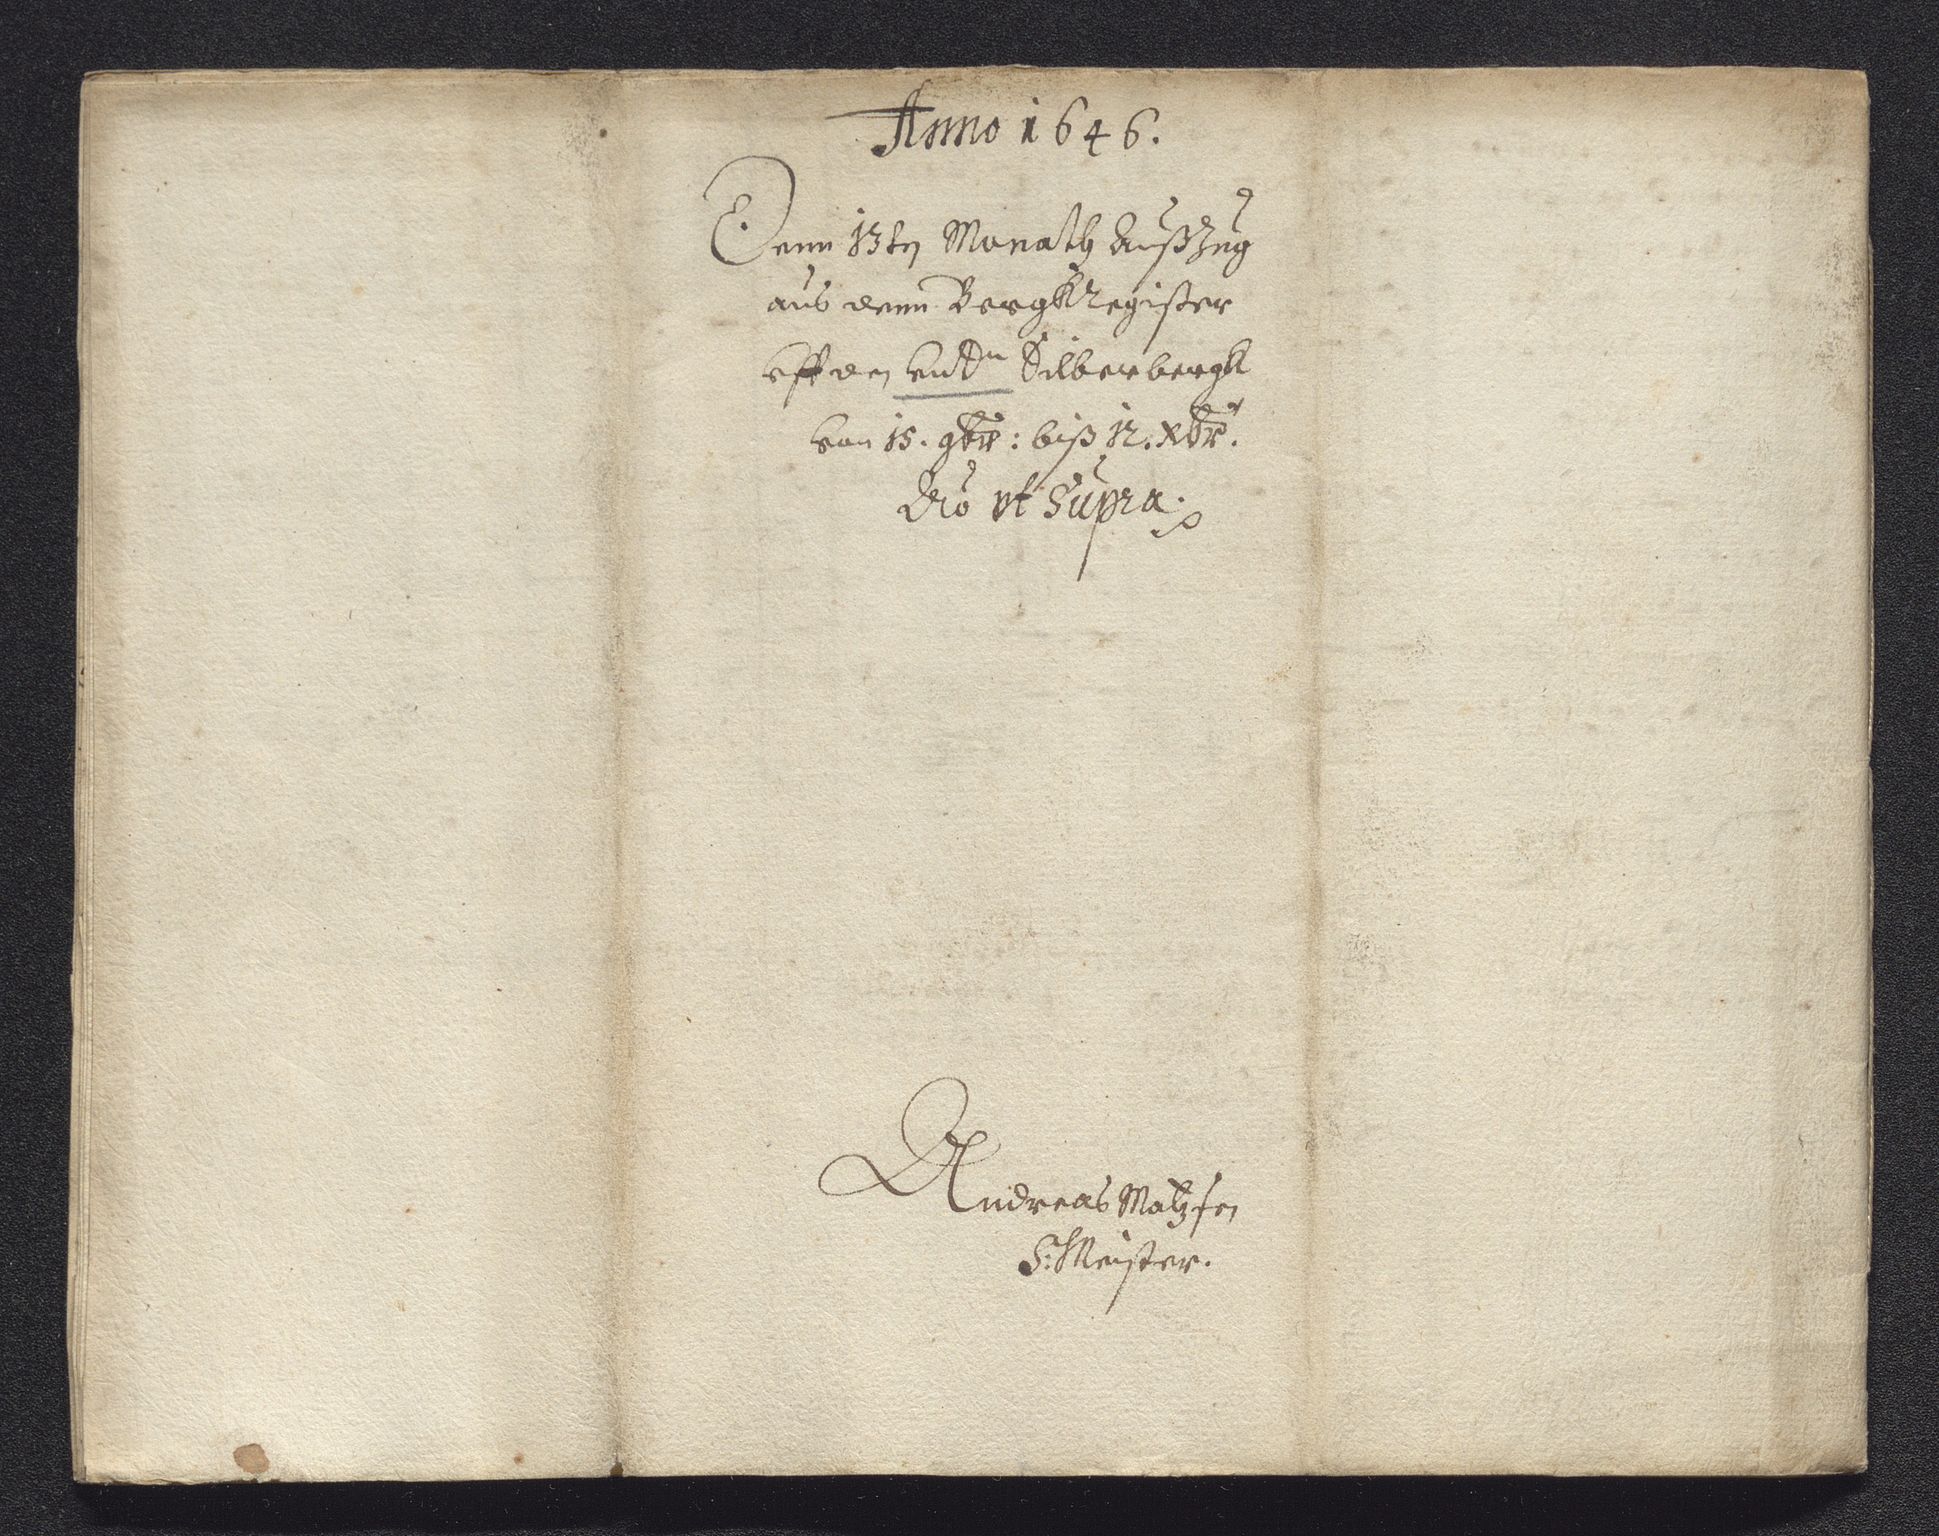 Anno 1646.
Denn 13ten Monath Außzug
aus denn BergkRegister
vff den Silberbergk
von 15. 9br: biß 12. Xbr.
Ao vt Supra.
Andreas Matzsen
S: Meister.